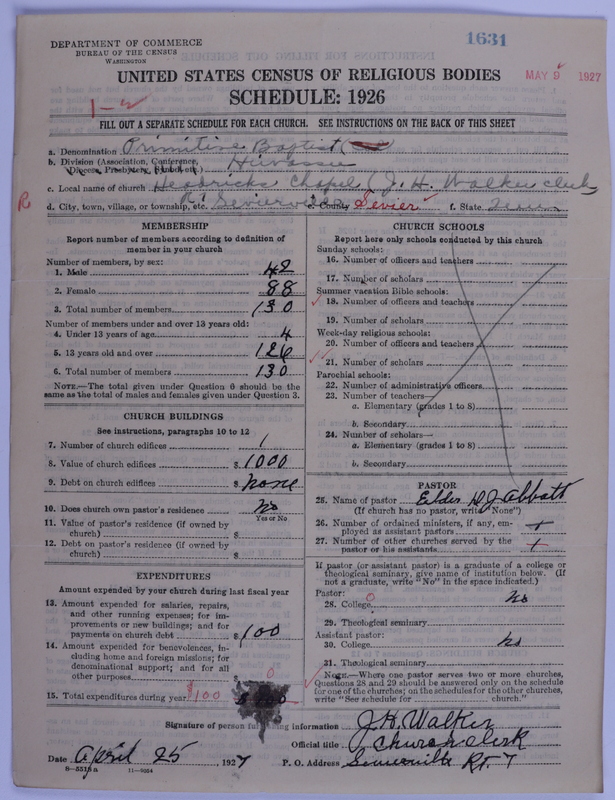 1631
DEPARTMENT OF COMMERCE
BUREAU OF THE CENSUS
WASHINGTON
UNITED STATES CENSUS OF RELIGIOUS BODIES
MAY 9 1927
SCHEDULE: 1926
1-2
FILL OUT A SEPARATE SCHEDULE FOR EACH CHURCH. SEE INSTRUCTIONS ON THE BACK OF THIS SHEET
a. Denomination Primitive Baptist
b. Division (Association, Conference, Diocese, Presbytery, Synod, etc.) Hiwassee
c. Local name of church Headricks Chapel (J. H. Walker clerk
R d. City, town, village, or township, etc. Sevierville e. County Sevier f. State Tenn
MEMBERSHIP
Report number of members according to definition of
member in your church
Number of members, by sex:
1. Male 42
2. Female 88
3. Total number of members 130
Number of members under and over 13 years old:
4. Under 13 years of age 4
5. 13 years old and over 126
6. Total number of members 130
NOTE.—The total given under Question 6 should be the
same as the total of males and females given under Question 3.
CHURCH BUILDINGS
See instructions, paragraphs 10 to 12
7. Number of church edifices 1
8. Value of church edifices $ 1000
9. Debt on church edifices $ none
10. Does church own pastor's residence no
Yes or No
11. Value of pastor's residence (if owned by
church) $
12. Debt on pastor's residence (if owned by
church) $
EXPENDITURES
Amount expended by your church during last fiscal year
13. Amount expended for salaries, repairs,
and other running expenses; for im-
provements or new buildings; and for
payments on church debt $ 100
14. Amount expended for benevolences, in-
cluding home and foreign missions; for
denominational support; and for all
other purposes $ 0
15. Total expenditures during year $100
CHURCH SCHOOLS
Report here only schools conducted by this church
Sunday schools:
16. Number of officers and teachers
17. Number of scholars
Summer vacation Bible schools:
18. Number of officers and teachers
19. Number of scholars
Week-day religious schools:
20. Number of officers and teachers
21. Number of scholars
Parochial schools:
22. Number of administrative officers
23. Number of teachers—
a. Elementary (grades 1 to 8)
b. Secondary
24. Number of scholars—
a. Elementary (grades 1 to 8)
b. Secondary
PASTOR
25. Name of pastor Elder H J Abbott
(If church has no pastor, write "None")
26. Number of ordained ministers, if any, em-
ployed as assistant pastors
27. Number of other churches served by the
pastor or his assistants
If pastor (or assistant pastor) is a graduate of a college or
theological seminary, give name of institution below. (If
not a graduate, write "No" in the space indicated.)
Pastor:
28. College 0 no
29. Theological seminary
Assistant pastor:
30. College no
31. Theological seminary
NOTE.—Where one pastor serves two or more churches,
Questions 28 and 29 should be answered only on the schedule
for one of the churches; on the schedules for the other churches,
write "See schedule for church."
Signature of person furnishing information J. H. Walker
Official title church clerk
Date April 25 1927 P. O. Address Sevierville Rt. 7
8-551 a 11-9054